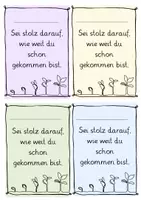 Sei stolz darauf,
wie weit du
schon
gekommen bist.
Sei stolz darauf,
wie weit du
schon
gekommen bist.
Sei stolz darauf,
wie weit du
schon
gekommen bist.
Sei stolz darauf,
wie weit du
schon
gekommen bist.